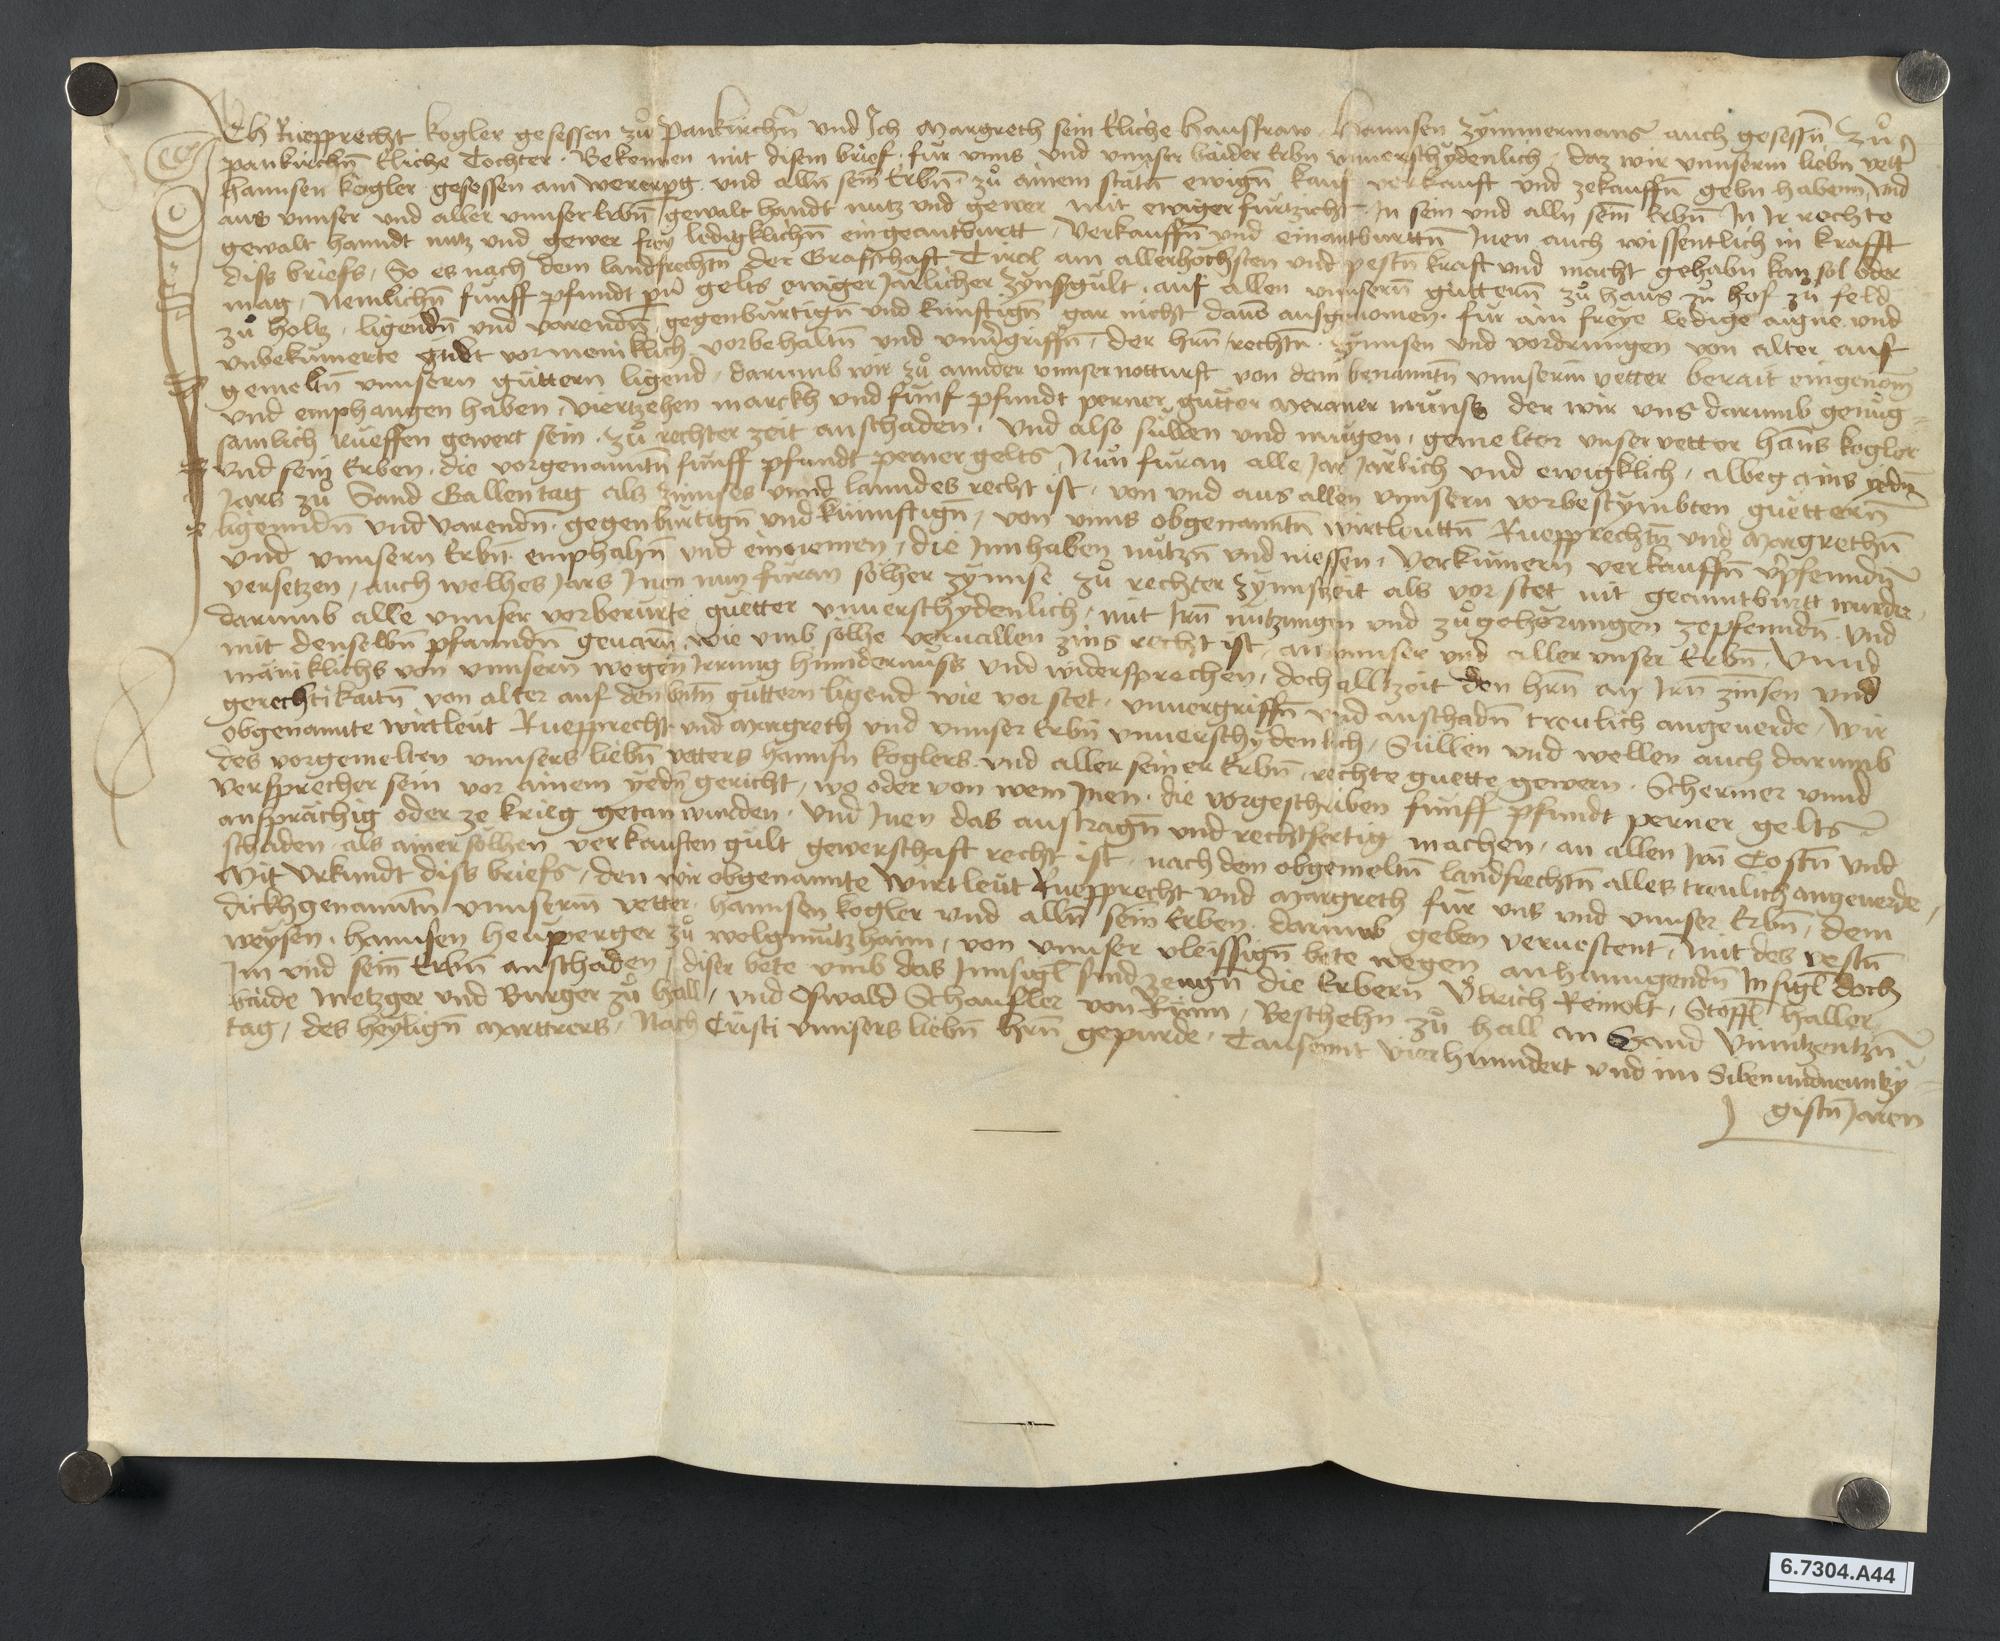 Ich Ruepprecht kogler gesessen zů Pankirchñ und Ich Margreth sein Eliche hausfraw hannsen zymmermans auch gesessñ zů
pankirchñ Eliche Tochter. Bekennen mit disem brief. für unns und unnser baider Erbn unuerschydenlich, daz wir unnserm liebn vett̃
hannsen kogler gesessen am wererpg. und alln sein Erbñ. zů ainem stätñ ewigñ kauf verkauft und zekauffñ gebn habenn, und
aus unnser und aller unnser Erbñ gewalt handt nutz und gewer mit ewiger fürtzicht In sein und alln sein Erbñ In Ir rechte
gewalt hanndt nutz und gewer frey ledigklichñ eingeantburtt, Verkauffñ und einantburttñ Inen auch wissentlich in krafft
diss briefs, So es nach dem landsrechtñ der Grafschaft Tirol am allerhöchsten und pestñ kraft und macht gehabñ kan sol oder
mag, Nemlichñ fünff pfundt pñ gelts ewiger Järlicher zynsgült. auf allen unnserñ gütterñ zů haus zů hof zů feld
zů holtz. ligendñ und varendñ, gegenbürtigñ und künftigñ gar nicht dauõ ausgenomen. für ain freye ledige aigne. und
unbekumerte güelt vor meniklich vorbehaltñ und unuergriffñ, der hrñ rechtñ. zynnsen und vordrungen von alter auf
gemeltñ unnsern güttern ligend, darumb wir zů annder unnser notturft von dem benanntñ unnserm vetter berait eingenom̃
und emphangen haben, viertzehen marckh und fünf pfundt perner gütter Meraner münss der wir uns darumb genůg
samlich rueffen gewert sein. zů rechter zeit anschaden. Und also süllen und mügen, gemelter unser vetter hañs kogler
und sein Erben. die vorgenanntñ fünff pfundt perner gelts Nun füran alle Jar Järlich und ewigklich, albeg ains yedñ
Jars zů Sand Gallen tag als zinnses unnd lanndes recht ist, von und aus allen unnsern vorbestymbten güettern
ligenndñ und varendñ. gegenbürtigñ und künnftigñ, von unns obgenanntñ wirtleuttñ Ruepprechtñ und Margrethñ
und unnsern Erbñ. emphahñ und einnemen, die Innhaben nützñ und niessen, Verkümern verkauffñ v̈pfenndñ
versetzen, auch welhes Jars Inen nun füran sölher zynnse zů rechter Zynnszeit als vor stet nit geanntburtt wurde,
darumb alle unnser vorberürte güetter unuerschydenlich, mit Irñ nutzungen und zůgehörungen zepfenndñ. und
mit denselbñ pfanndñ geuarñ. wie umb sölhe veruallen zins recht ist, an unnser und aller unser Erbñ. Unnd
mäniklichs von unnsern wegen Irrung hinndernüss und widersprechen, doch alltzeit den hrñ an Irñ zinsen und
gerechtikaitñ von alter auf den bntñ güttern ligend wie vor stet. unuergriffñ und anschadñ treulich angeuerde, Wir
obgenannte wirtleüt Ruepprecht und Margreth und unnser Erbñ unuerschydenlich, Süllen und wellen auch darumb
des vorgemelten unnsers liebñ vetters hannsñ koglers. und aller seiner Erbñ, rechte guette gewern. Schermer unnd
versprecher sein vor ainem yedñ gericht, wo oder von wem Inen. die vorgeschriben fünff pfundt perner gelts
ansprächig oder ze krieg getan wurden. Und Inen das austragñ und rechtfertig machen, an allen Irñ Costñ und
schäden. als ainer sölhen verkauften gült gewerschaft recht ist, nach dem obgemeltñ landsrechtñ alles treulich angeuerde,
Mit Urkundt diss briefs, den wir obgenannte Wirtleüt Ruepprecht und Margreth für uns und unnser Erbñ, dem
dickhgenanntñ unnserm vetter. hannsen kogler und alln sein Erben. darumb geben veruestent, mit des vestñ
weysen. hannsen heuperger zů wolgmutzhaim, von unnser vleissigñ bete wegen anhanngendñ Insigl doch
Im und sein Erbñ anschaden, diser bete umb das Innsigl sind zeugñ die Erbern Ůlrich Remolt, Stoffl haller
baide Metzger und Burger zů hall, und Oswald Schaufler von Rynn, Beschehñ zů hall an Sand Vinntzentzñ
tag, des heyligñ Marttrers, Nach Cristi unnsers liebñ hrñ gepurde. Tausennt vierhunndert und im Sibenundneuntzi
gistñ Jaren
6.7304.A44